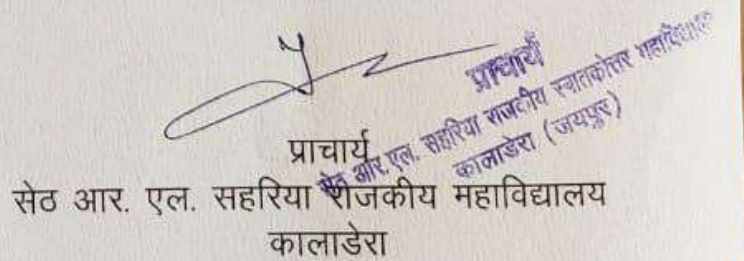 प्राचार्य
सेठ आर.एल. सहरिया राजकीय स्नातकोत्तर महाविद्यालय
कालाडेरा (जयपुर)
प्राचार्य
सेठ आर. एल. सहरिया राजकीय महाविद्यालय
कालाडेरा